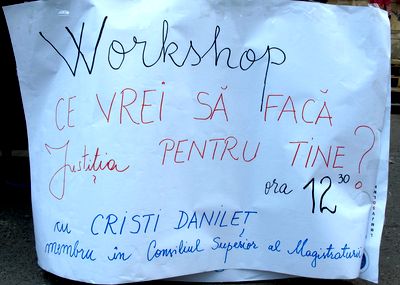 Workshop
CE VREI SĂ FACĂ
Justiția PENTRU TINE?
ora 12³⁰
cu CRISTI DANILEȚ
membru în Consiliul Superior al Magistraturii